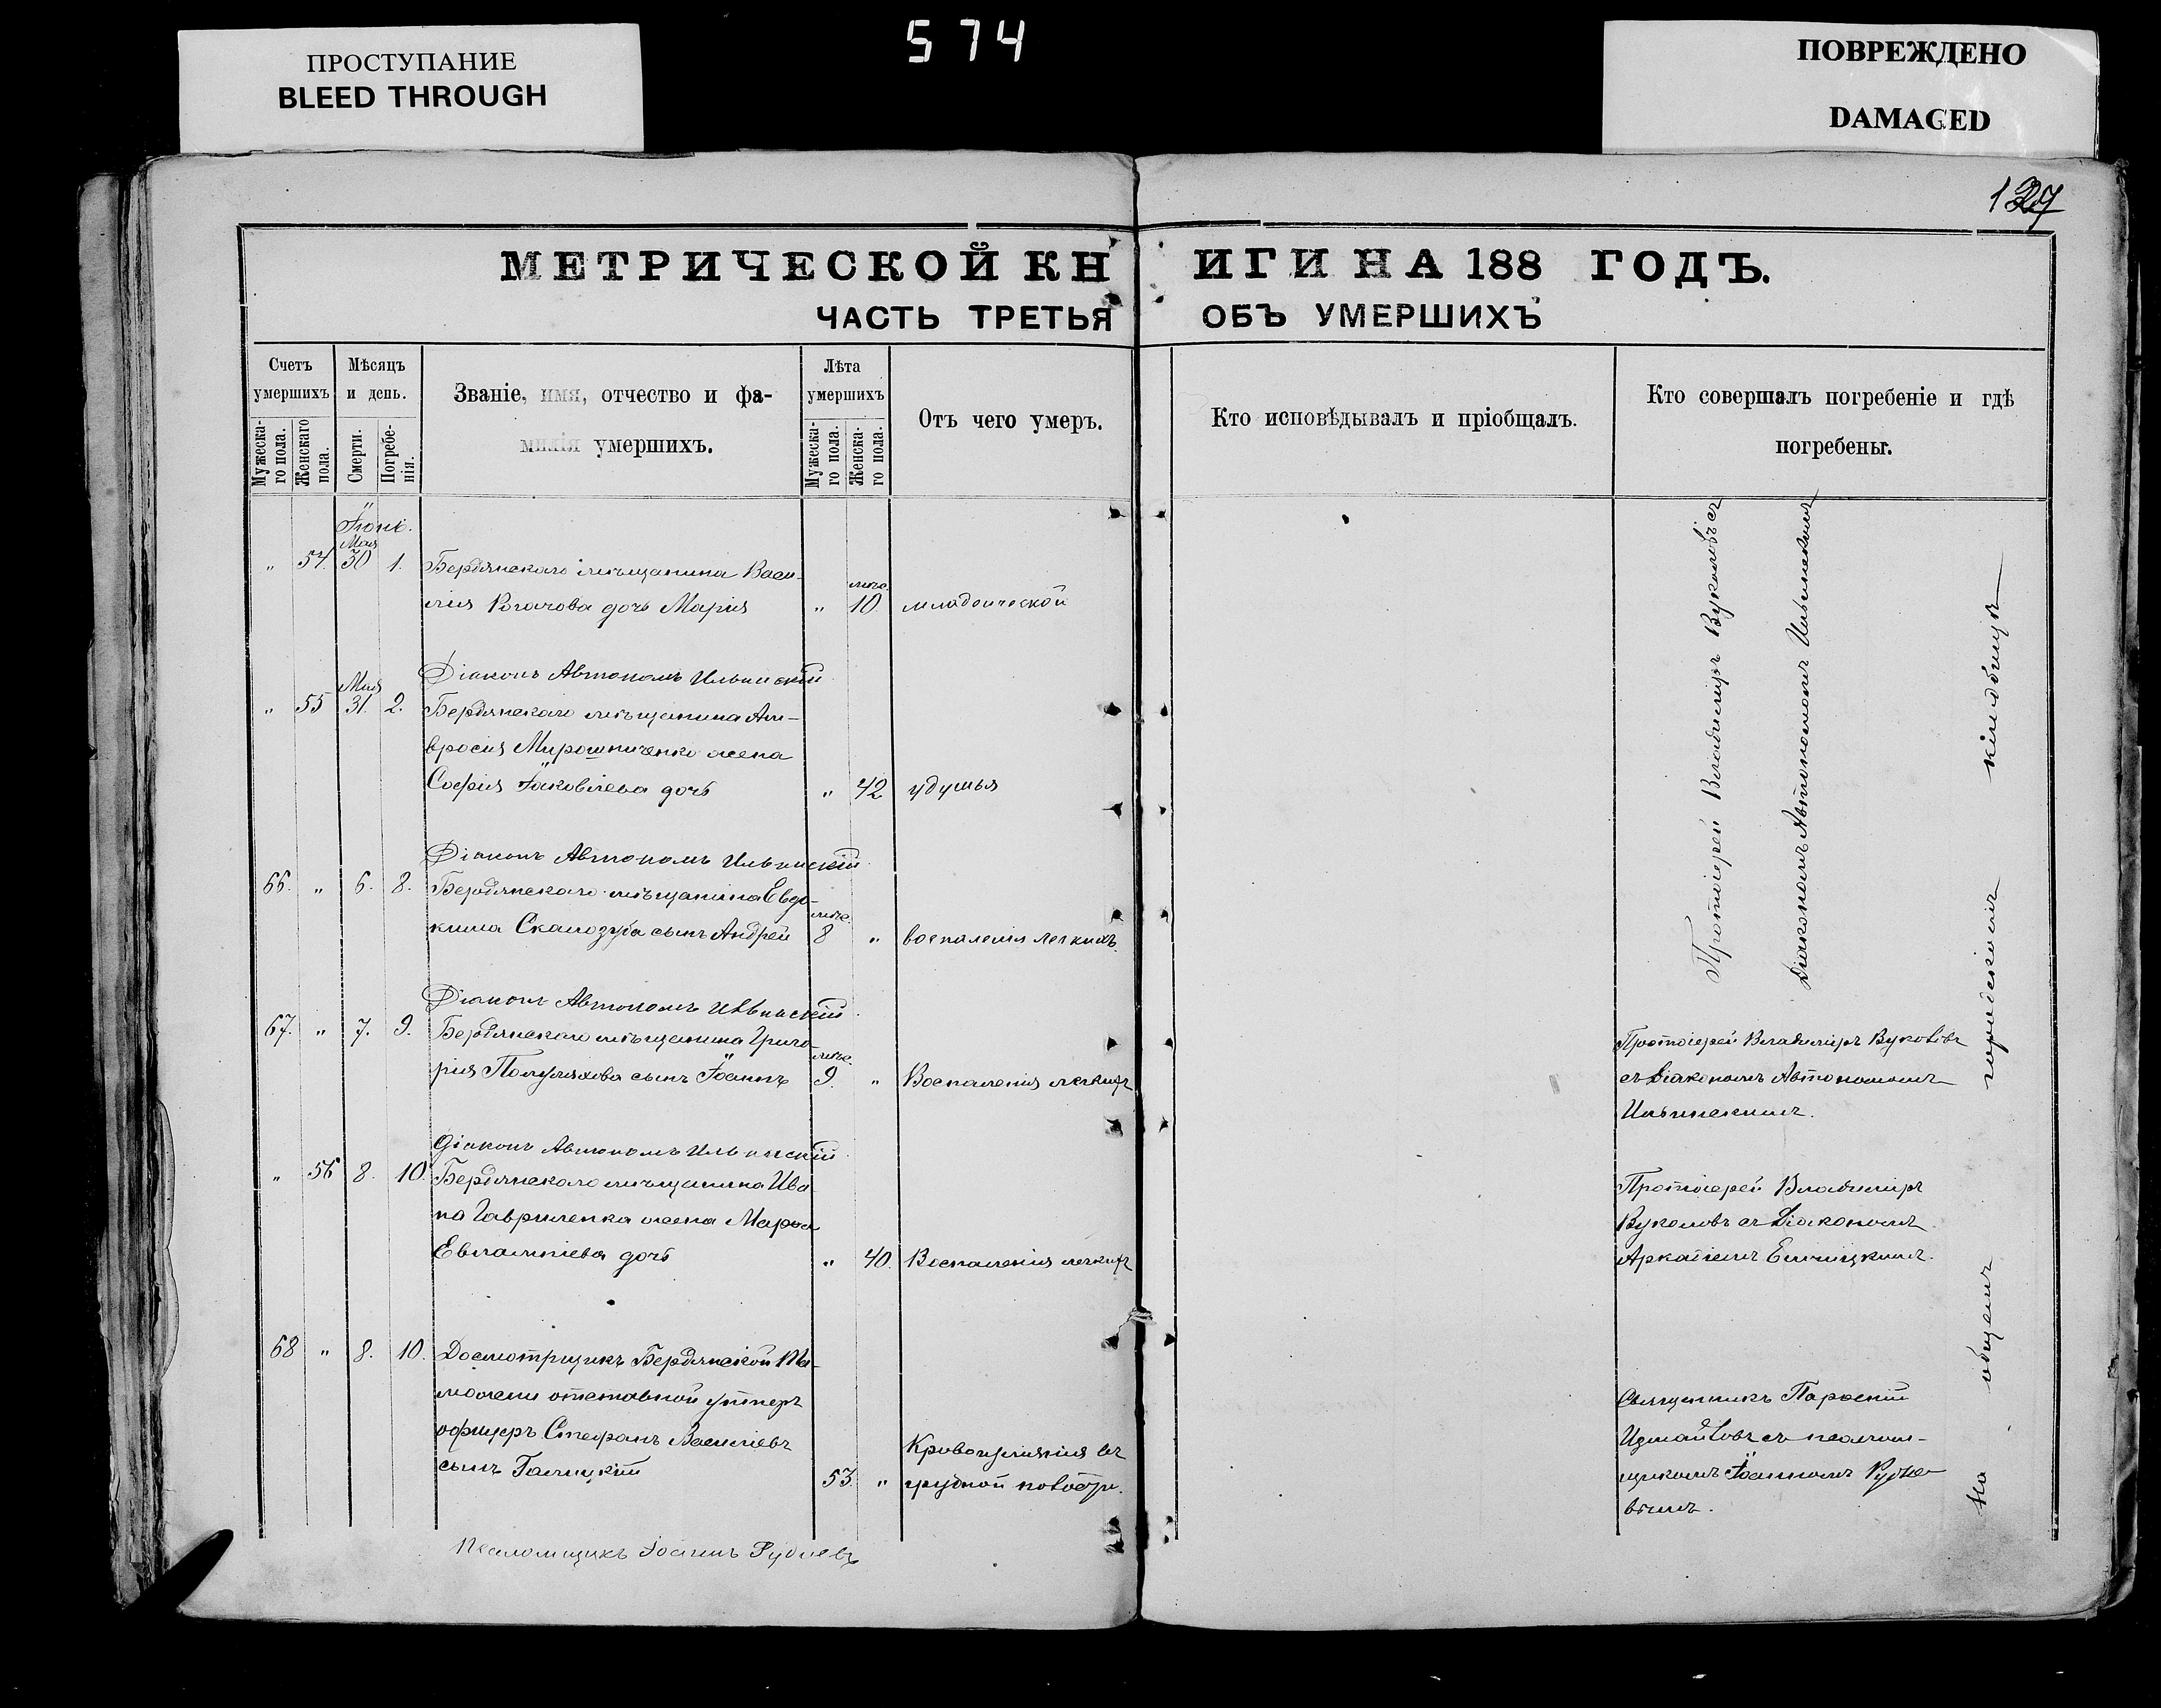 ПРОСТУПАНИЕ
BLEED THROUGH
574
ПОВРЕЖДЕНО
DAMAGED
127
МЕТРИЧЕСКОЙ КНИГИ НА 188 ГОДЪ.
ЧАСТЬ ТРЕТЬЯ ОБЪ УМЕРШИХЪ
Счетъ умершихъ.
Мужеска-го пола.
Женскаго пола.
Мѣсяцъ и день.
Смерти.
Погребе-нія.
Званіе, имя, отчество и фа-
милія умершихъ.
Лѣта умершихъ
Мужеска-го пола.
Женска-го пола.
Отъ чего умеръ.
Кто исповѣдывалъ и пріобщалъ.
Кто совершалъ погребеніе и гдѣ
погребены.
Іюнь.
Мая
" 54. 30 1. Бердянскаго мѣщанина Васи-
лія дочь Марія " мѣс. 10 младенческой
Діаконъ Автономъ Ильинскій
Мая
" 55 31. 2. Бердянскаго мѣщанина Ам-
вросія Мирошниченко жена
Софія Іаковлева дочь " 42 удушья
Діаконъ Автономъ Ильинскій
66. " 6. 8. Бердянскаго мѣщанина Евдо-
кима Скалозуба сынъ Андрей мѣс. 8 " воспаленія легкихъ.
Діаконъ Автономъ Ильинскій
67. " 7. 9. Бердянскаго мѣщанина Григо-
рія сынъ Іоаннъ мѣс. 9. " Воспаленія легкихъ
Діаконъ Автономъ Ильинскій
" 56 8. 10. Бердянскаго мѣщанина Ива
на Гавриленка жена Марѳа
Евлампіева дочь " 40. Воспаленія легкихъ
68 " 8. 10. Досмотрщикъ Бердянской Та-
можени отставной унтеръ
офицеръ Стефанъ Васильевъ
сынъ Галицкій 53. "
Кровоизліянія въ
грудной полости.
Псаломщикъ Іоаннъ Рудневъ
Протоіерей Владиміръ Вуколовъ съ
Діакономъ Автономомъ Ильинскимъ
Протоіерей Владиміръ Вуколовъ
съ Діакономъ Автономомъ
Ильинскимъ.
Протоіерей Владиміръ
Вуколовъ съ Діакономъ
Священникъ
съ псалом-
щикомъ Іоанномъ Рудне-
вымъ.
На общемъ городскомъ кладбищѣ